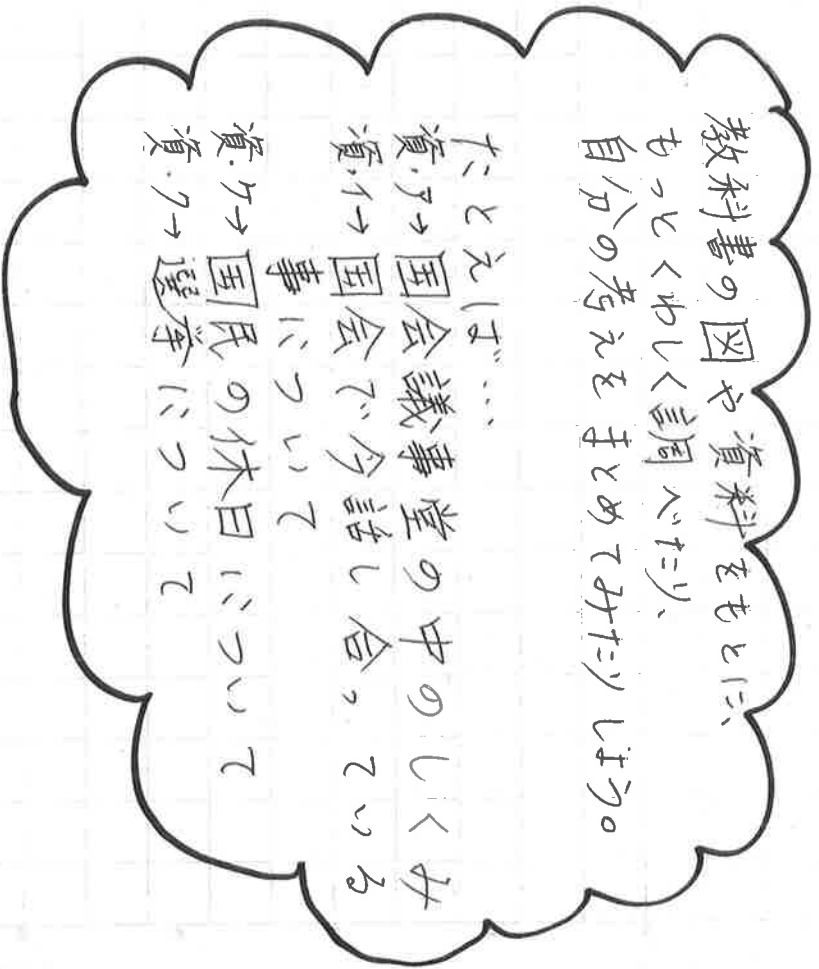 教科書の図や資料をもとに、
もっとくわしく調べたり、
自分の考えをまとめてみたりしよう。
たとえば…
資・ア→国会議事堂の中のしくみ
資・イ→国会で今話し合っている
事について
資・ケ→国民の休日について
資・ク→選挙について